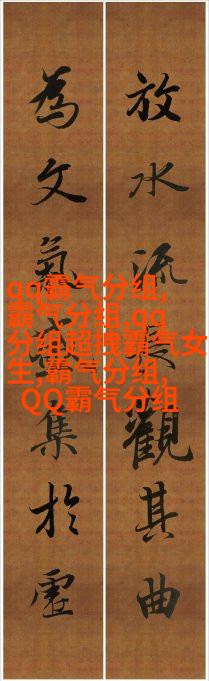 放水流觀其曲
為文氣集於虛
qq霸气分组,
霸气分组,qq
分组超拽霸气女
生,霸气分组,
QQ霸气分组